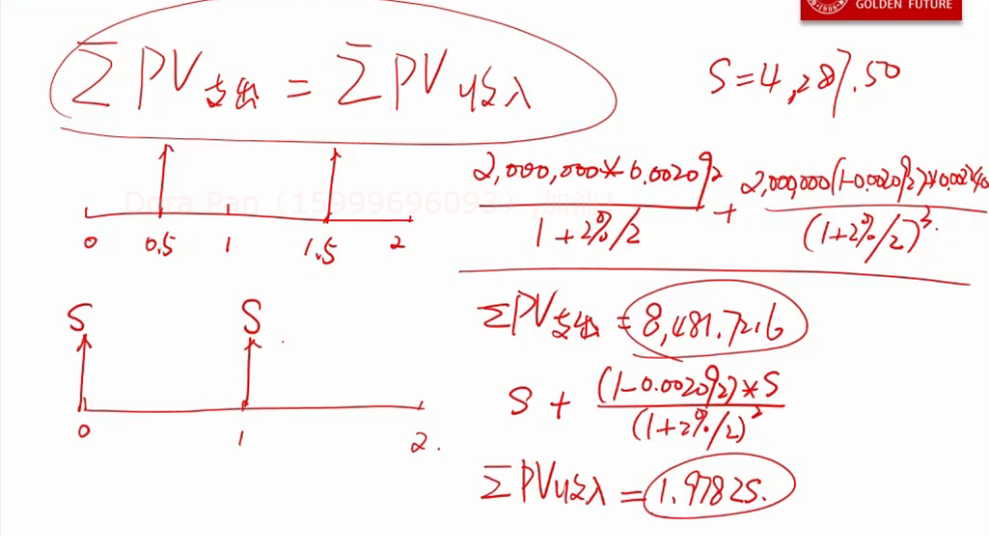 GOLDEN FUTURE
∑PV支出 = ∑PV收入
S=4,287.50
2,000,000*0.002092/1+2%/2 + 2,000,000(1-0.002092)*0.00240/(1+2%/2)^3
Dora Pan（15999696093）
0 0.5 1 1.5 2
∑PV支出 = 8,481.7216
S S
0 1 2.
S + (1-0.002092)*S/(1+2%/2)^2
∑PV收入 = 1.9782S.